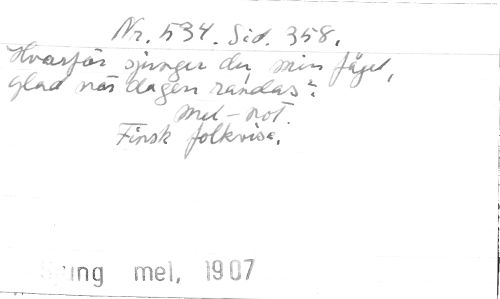 Nr. 534. Sid. 358.
Hvarför sjunger du, min fågel,
glad när dagen randas?
Mel-not.
Finsk folkvisa.
jung mel, 1907